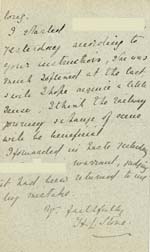 long.
I started
yesterday according to
your instructions, She was
much depressed at the last,
so I hope requires a little
I think the railway
journey & change of scene
will be beneficial
I forwarded in Yesterday
warrant,
it had been returned to me
by mistake
Yrs faithfully